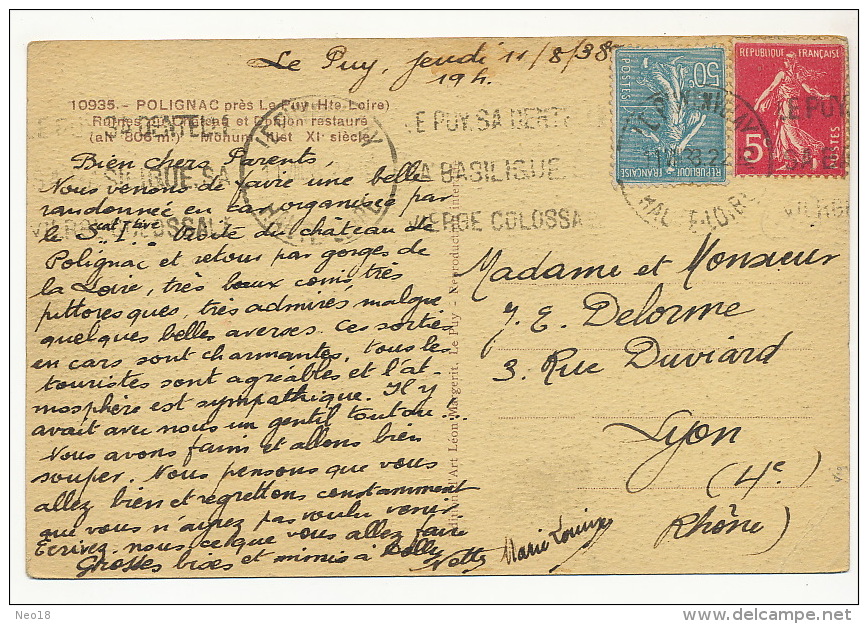 Le Puy, jeudi 11/8/38
19h.
10935.- POLIGNAC près Le Puy (Hte Loire)
Ruines du Château et Donjon restauré
(alt. 806 m) Monum. Hist XIe siècle
Bien chers Parents,
Nous venons de faire une belle
randonnée en cars organisée par
le Sdt Itive. Visite du château de
Polignac et retour par gorges de
la Loire, très beaux coins, très
pittoresques, très admirés malgré
quelques belles averses. Ces sorties
en cars sont charmantes, tous les
touristes sont agréables et l'at-
mosphère est sympathique. Il y
avait avec nous un gentil toutou...
Nous avons faim et allons bien
souper. Nous pensons que vous
allez bien et regrettons constamment
que vous n'ayez pas voulu venir
Ecrivez-nous ce que vous allez faire
Grosses bises et mimis à Dolly
Netty Marie Louise
Editions d'Art Léon Margerit, Le Puy - Reproduction interdite
50c
POSTES
REPUBLIQUE FRANÇAISE
REPUBLIQUE FRANÇAISE
5c
POSTES
LE PUY. SA DENTELLE
SA BASILIQUE
VIERGE COLOSSALE
LE PUY EN VELAY
HAUTE-LOIRE
Madame et Monsieur
J. E. Delorme
3. Rue Duviard
Lyon
(4e)
Rhône)
Neo18
delcampe.net